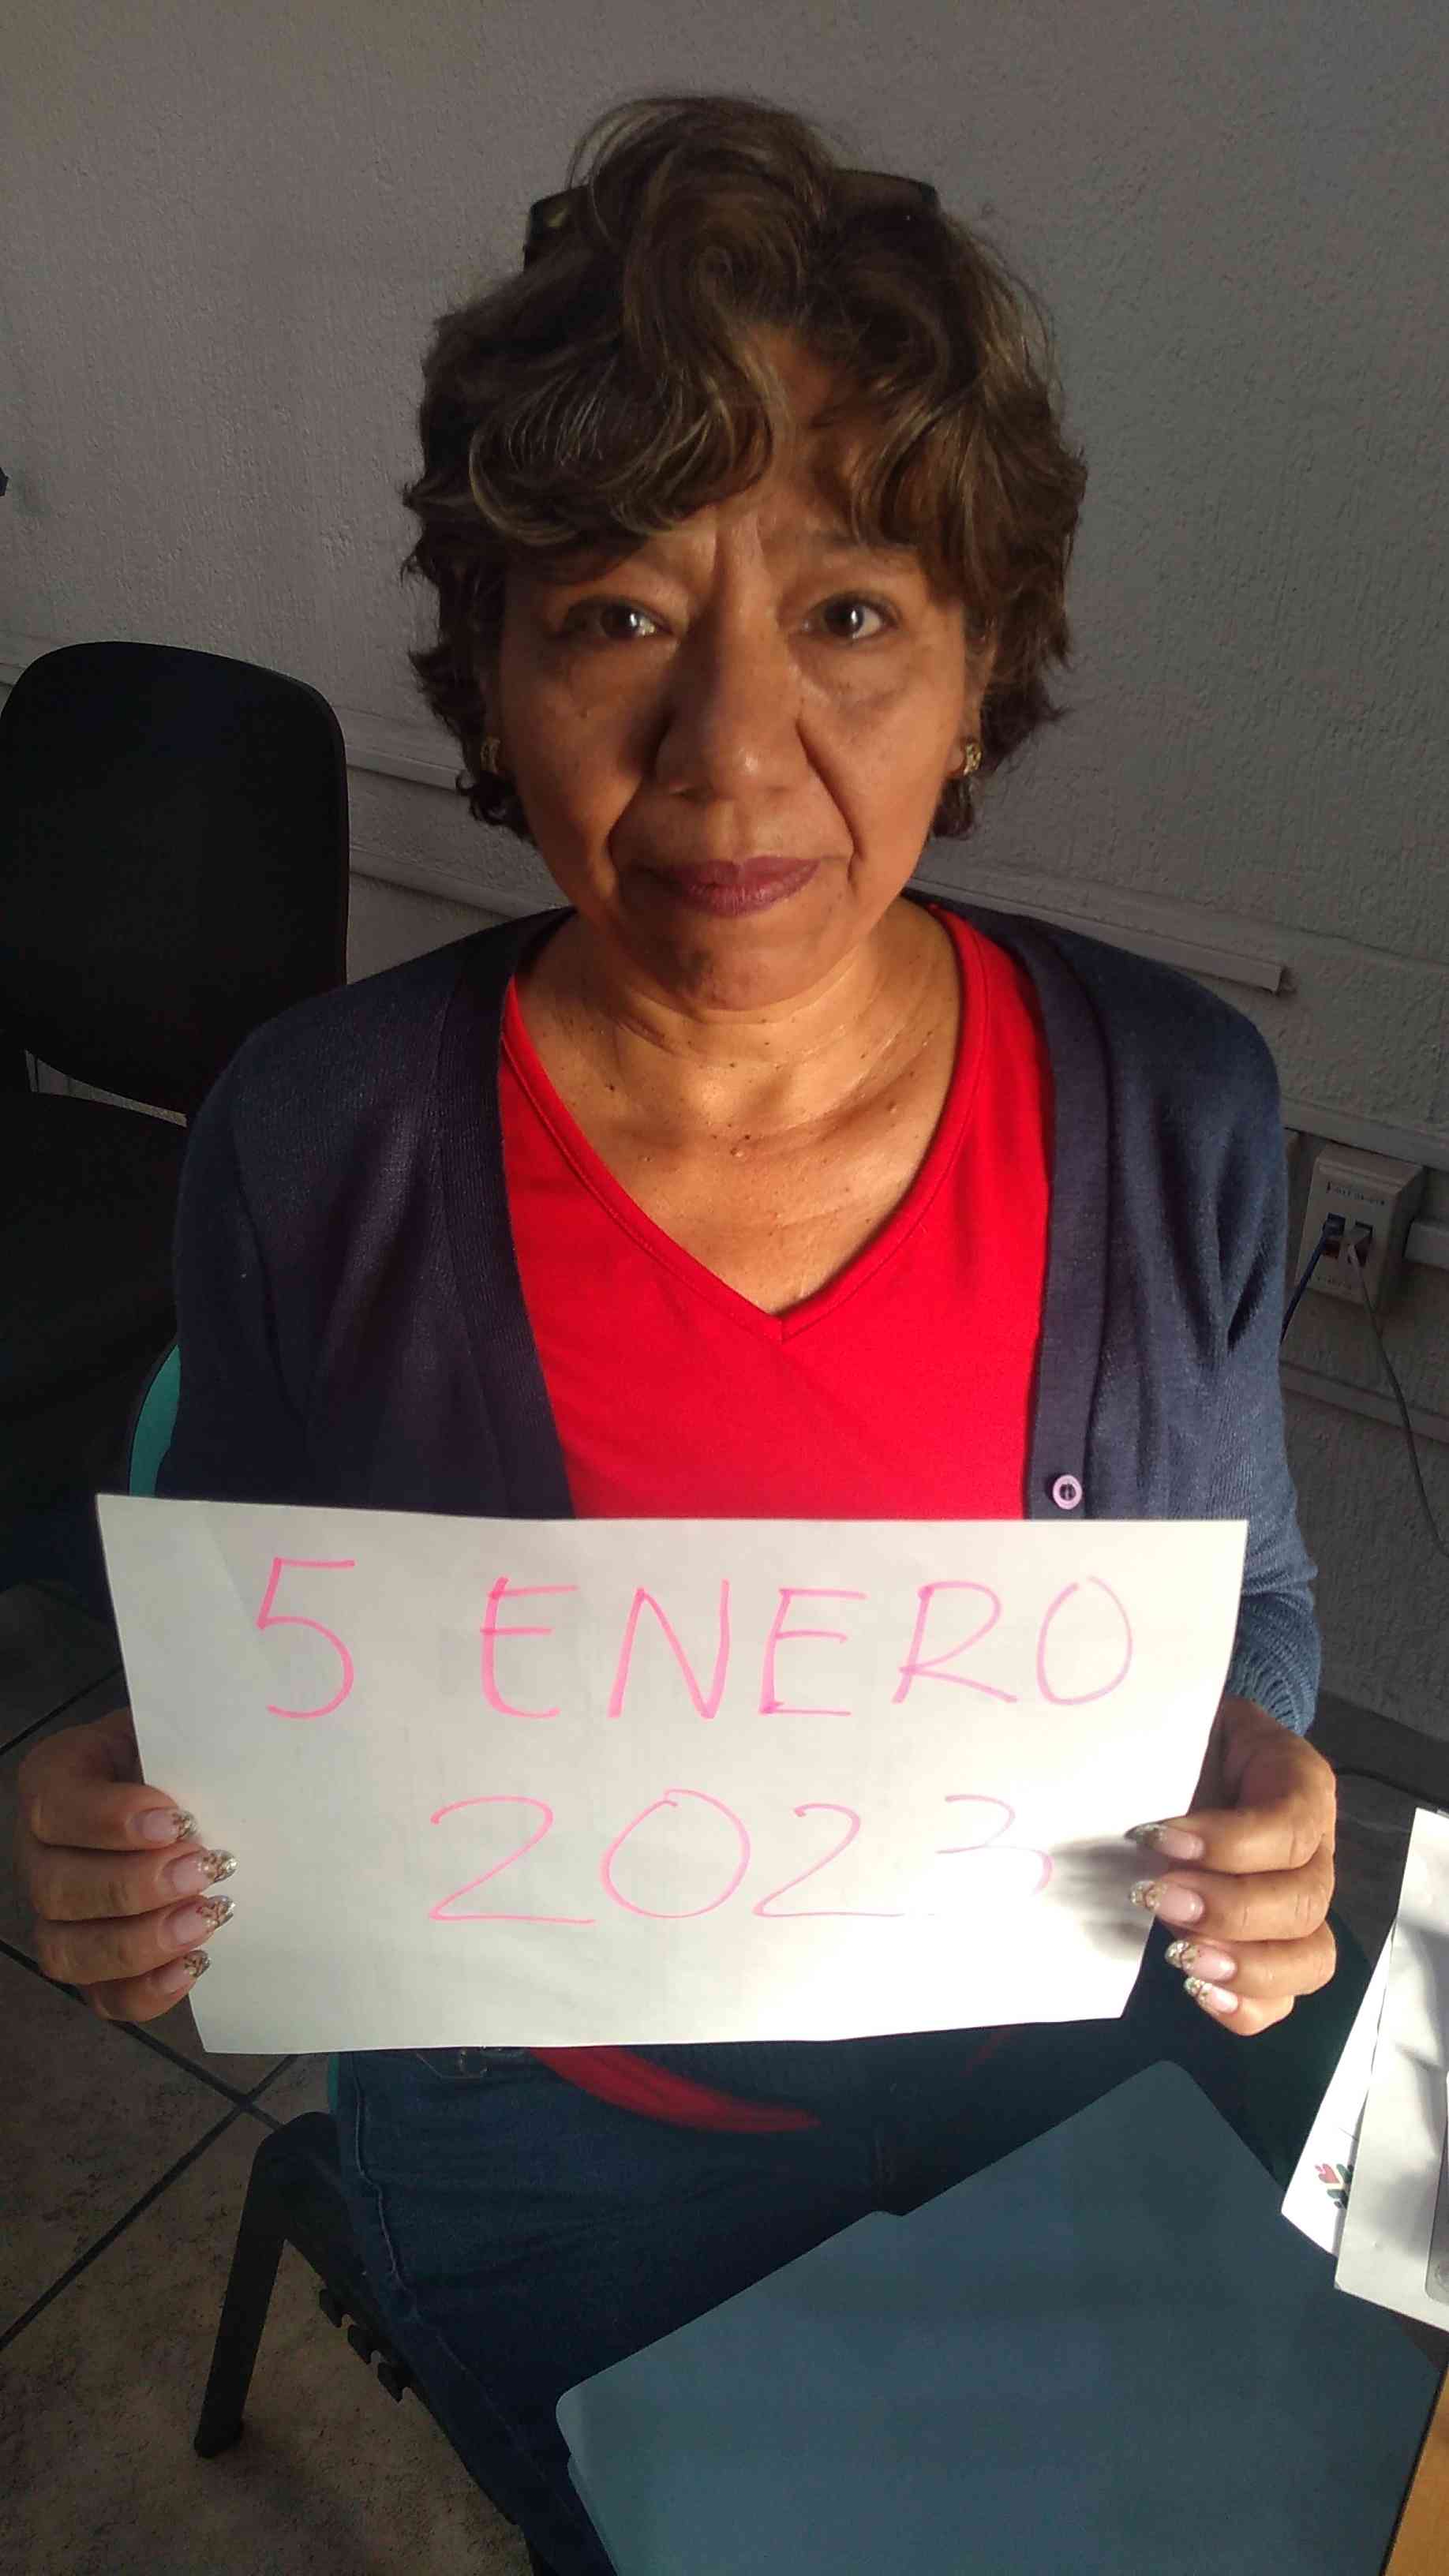 5 ENERO
2023